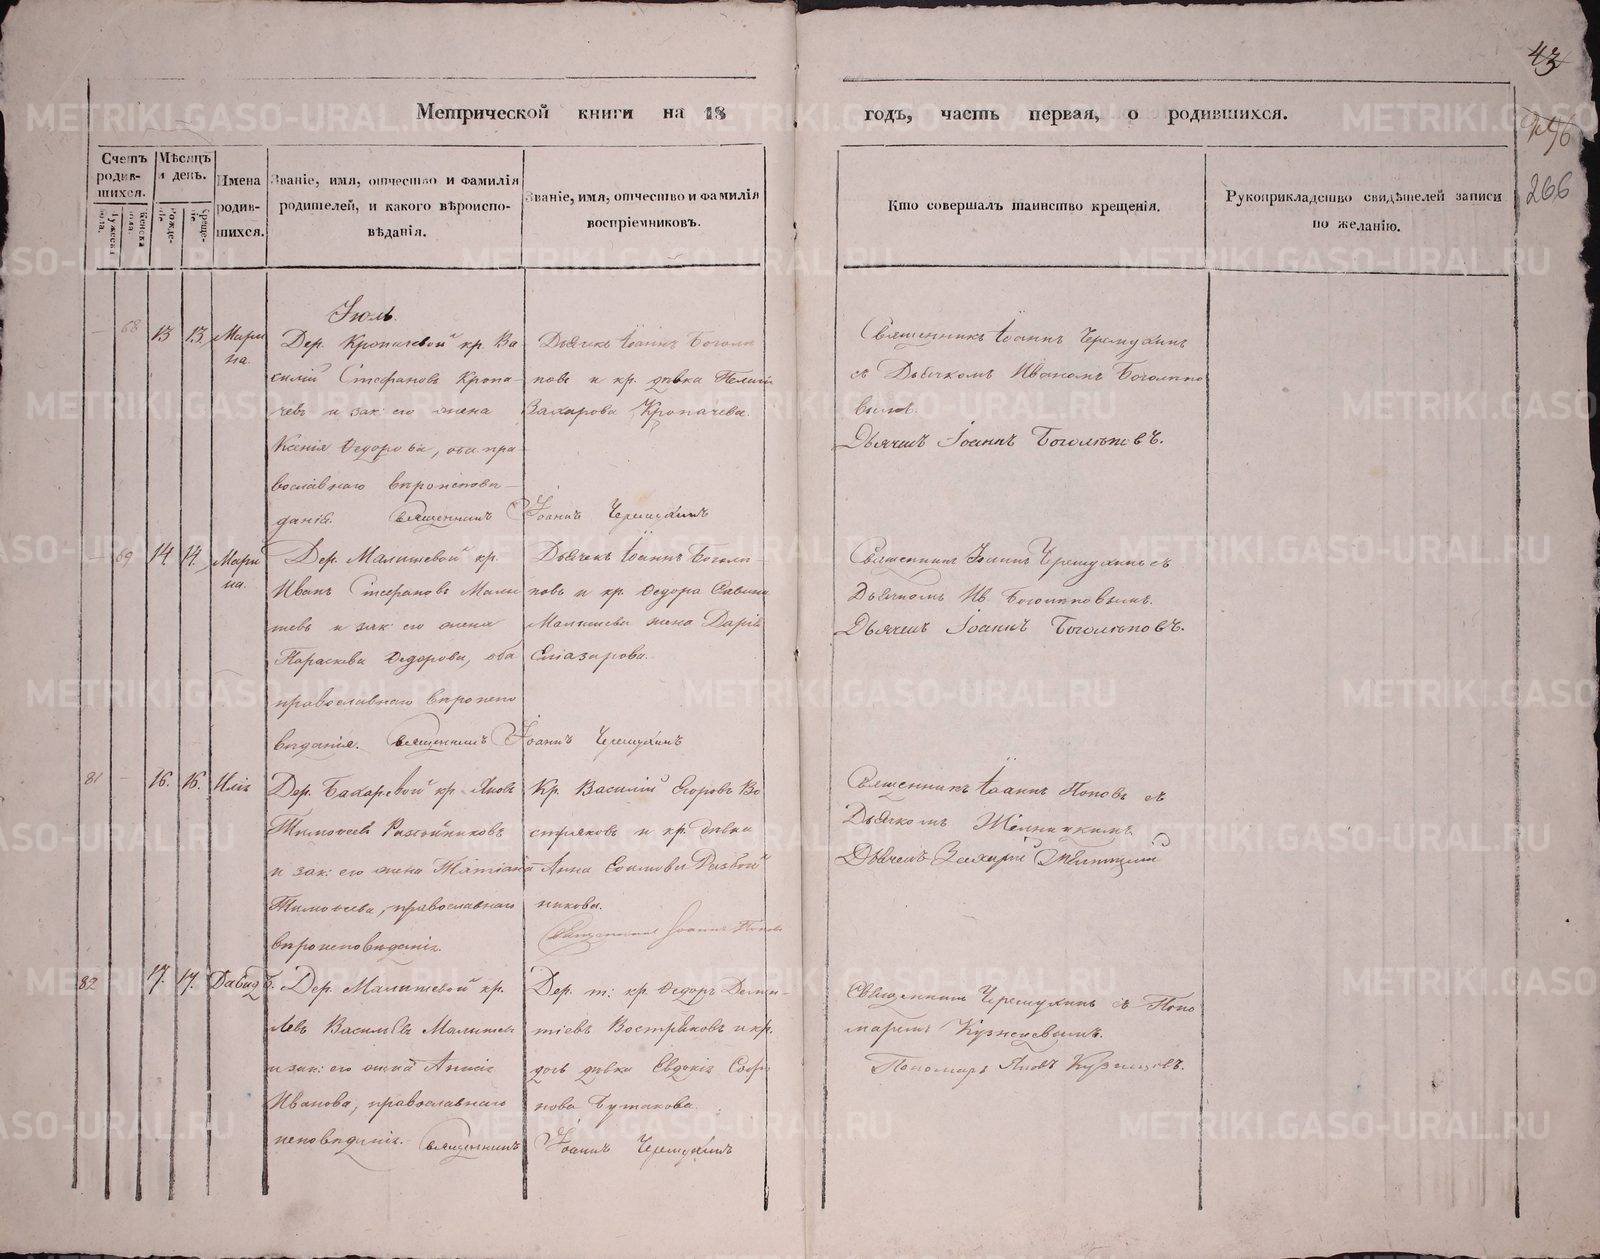 43
266
Метрической книги на 18
годъ, часть первая, о родившихся.
Счетъ родив-
шихся.
Мѣсяцъ
и день.
Имена
родив-
шихся.
Званіе, имя, отчество и фамилія
родителей, и какого вѣроиспо-
вѣданія.
Званіе, имя, отчество и фамилія
воспріемниковъ.
Кто совершалъ таинство крещенія.
Рукоприкладство свидѣтелей записи
по желанію.
Іюль.
68 13 13 Мари
на.
Дер. Кропачевой кр. Ва
силій Стефановъ Кропа
чевъ и зак: его жена
Ксенія Ѳедорова, оба пра
вославнаго вѣроисповѣ
данія. Священникъ Іоаннъ Черемухинъ
Дьячекъ Іоаннъ Боголѣ
повъ и кр. дѣвка
Захарова Кропачева.
Священникъ Іоаннъ Черемухинъ
съ Дьячкомъ Иваномъ Боголѣпо
вымъ.
Дьячекъ Іоаннъ Боголѣповъ.
69 14 14 Мари
на.
Дер. Малышевой кр.
Иванъ Стефановъ Малы
шевъ и зак: его жена
Параскева Ѳедорова, оба
православнаго вѣроиспо
вѣданія. Священникъ Іоаннъ Черемухинъ
Дьячекъ Іоаннъ Боголѣ
повъ и кр. Ѳедора Савина
Малышева жена Дарія
Елiазарова.
Священникъ Іоаннъ Черемухинъ съ
Дьячкомъ Ив. Боголѣповымъ.
Дьячекъ Іоаннъ Боголѣповъ.
81 16. 16. Илія
Дер. Бахаревой кр. Яковъ
Тимоѳеевъ Разбойниковъ
и зак: его жена Татіана
Тимоѳеева, православнаго
вѣроисповѣданія.
Кр. Василій Егоровъ Во
стряковъ и кр. дѣвка
Анна Разбой
никова.
Священникъ Іоаннъ Поповъ
Священникъ Іоаннъ Поповъ съ
Дьячкомъ
Дьячекъ Захарій
82 17. 17. Давидъ.
Дер. Малышевой кр.
Левъ Васильевъ Малышевъ
и зак: его жена Анисія
Иванова, православнаго
исповѣданія. Священникъ Іоаннъ Черемухинъ
Дер. т: кр. Ѳедоръ Демен-
тіевъ Востряковъ и кр.
дѣвка Евдокія
Бутакова.
Священникъ Черемухинъ съ Поно
маремъ Кузнецовымъ.
Пономарь Яковъ Кузнецовъ.
METRIKI.GASO-URAL.RU